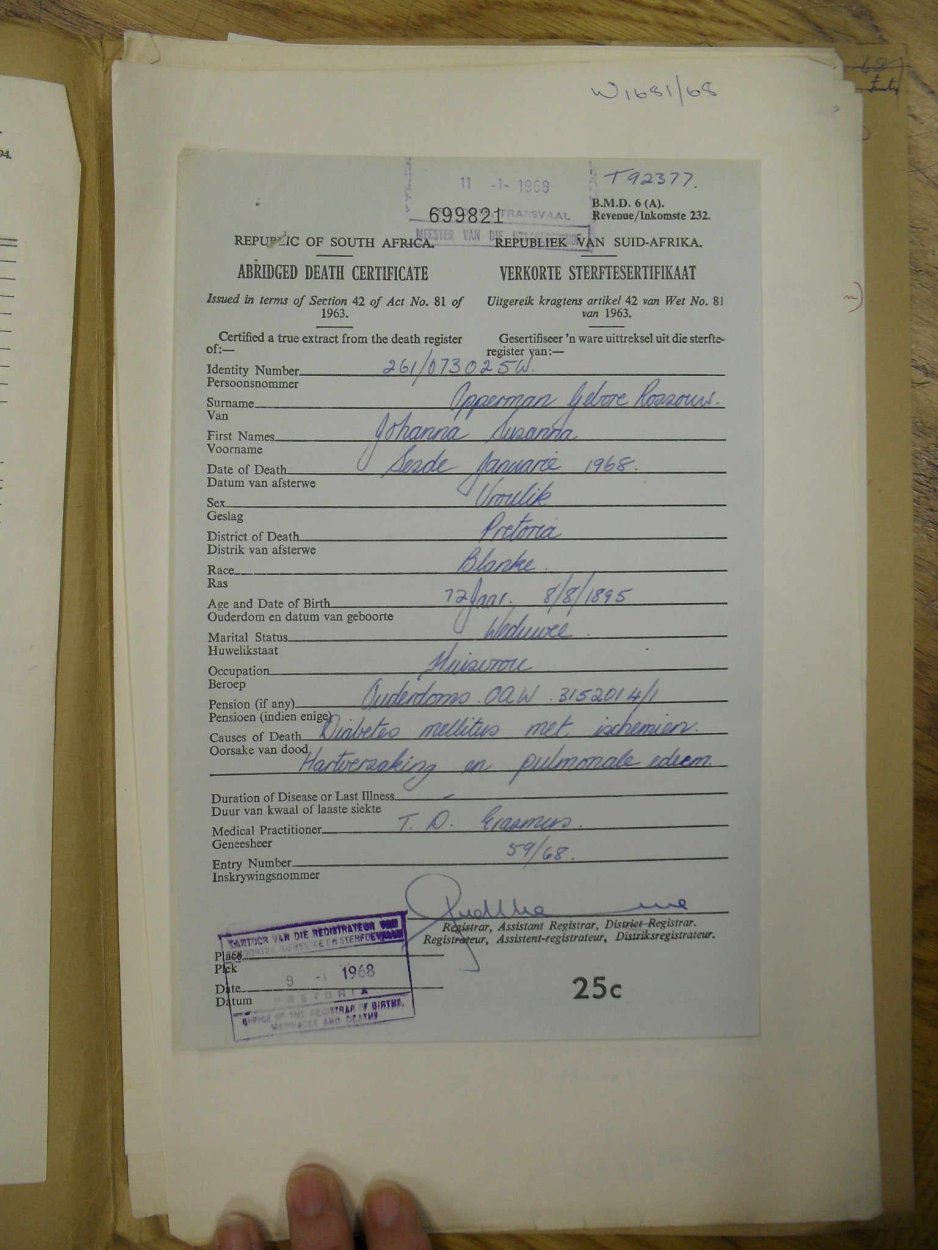 W1681/68
11 -1- 1968
T92377.
699821
TRANSVAAL
B.M.D. 6 (A).
Revenue/Inkomste 232.
MEESTER VAN DIE
REPUBLIC OF SOUTH AFRICA. REPUBLIEK VAN SUID-AFRIKA.
ABRIDGED DEATH CERTIFICATE VERKORTE STERFTESERTIFIKAAT
Issued in terms of Section 42 of Act No. 81 of 1963. Uitgereik kragtens artikel 42 van Wet No. 81 van 1963.
Certified a true extract from the death register of:— Gesertifiseer 'n ware uittreksel uit die sterfte-register van:—
Identity Number 261/073025W.
Persoonsnommer
Surname Opperman Gebore Rossouw.
Van
First Names Johanna Susanna.
Voorname
Date of Death Sesde Januarie 1968.
Datum van afsterwe
Sex Vroulik
Geslag
District of Death Pretoria
Distrik van afsterwe
Race Blanke.
Ras
Age and Date of Birth 72 Jaar. 8/8/1895
Ouderdom en datum van geboorte
Marital Status Weduwee.
Huwelikstaat
Occupation Huisvrou
Beroep
Pension (if any) Ouderdoms. OAW. 3152014/1
Pensioen (indien enige)
Causes of Death Diabetes mellitus met ischemien.
Oorsake van dood
Hartversaking en pulmonale edeem
Duration of Disease or Last Illness –
Duur van kwaal of laaste siekte
Medical Practitioner T. D. Erasmus.
Geneesheer
Entry Number 59/68.
Inskrywingsnommer
Registrar, Assistant Registrar, District Registrar.
Registrateur, Assistent-registrateur, Distriksregistrateur.
KANTOOR VAN DIE REGISTRATEUR VAN
Place
Plek
Date 9 -1 1968
Datum PRETORIA
OFFICE OF THE REGISTRAR OF BIRTHS,
MARRIAGES AND DEATHS
25c